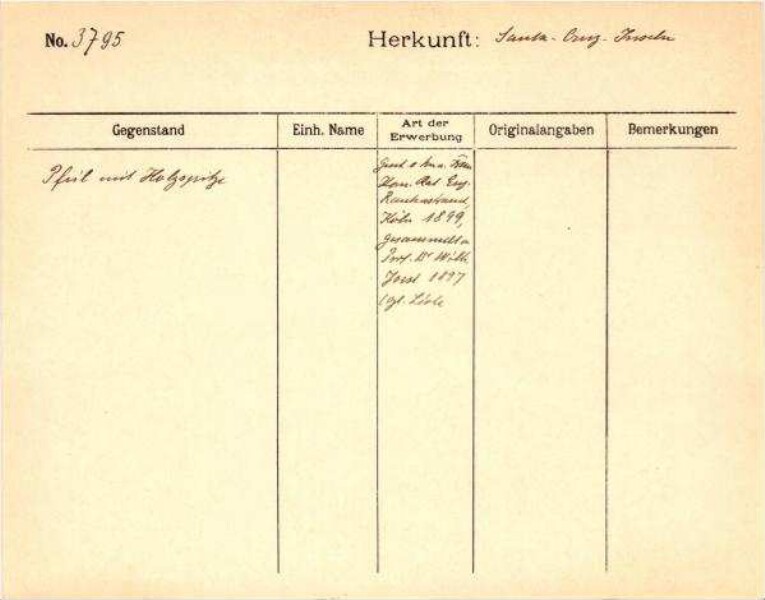 No. 3795
Herkunft: Santa-Cruz-Inseln
Gegenstand
Einh. Name
Art der Erwerbung
Originalangaben
Bemerkungen
Pfeil mit Holzspitze
Kom. Rat Eug.
Rautenstrauch
Köln 1899,
gesammelt v.
Prof. Dr Wilh.
Joest 1897
vgl. Liste